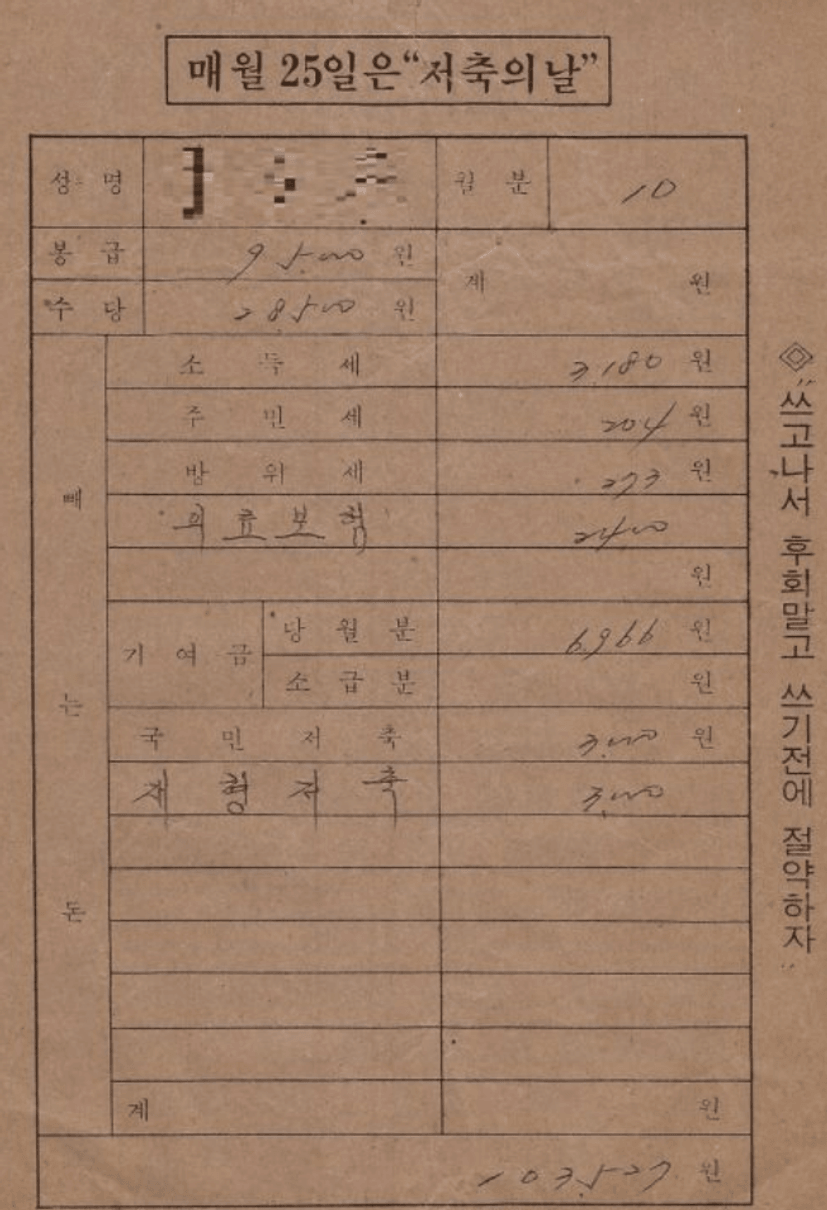 매월 25일은 “저축의 날”
성명 월분 10
봉급 95.000 원 계 원
수당 28.500 원
빼는돈
소득세 3.180 원
주민세 204 원
방위세 273 원
의료보험 2400
원
기여금 당월분 6.966 원
소급분 원
국민저축 3.000 원
재형저축 3.000
계 원
103.527 원
◈ “쓰고나서 후회말고 쓰기전에 절약하자”